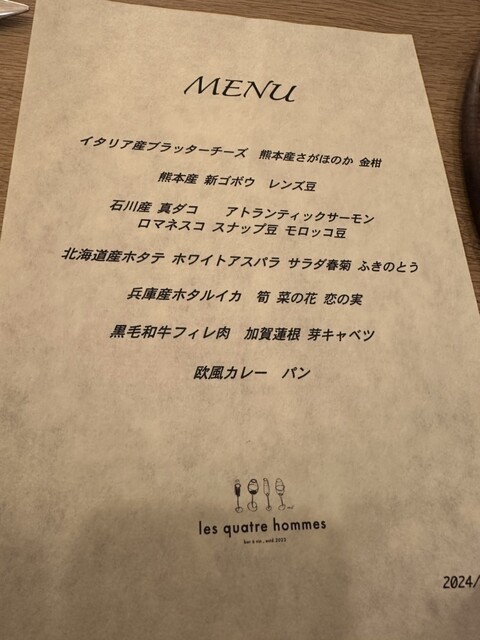 MENU
イタリア産ブラッターチーズ 熊本産さがほのか 金柑
熊本産 新ゴボウ レンズ豆
石川産 真ダコ アトランティックサーモン
ロマネスコ スナップ豆 モロッコ豆
北海道産ホタテ ホワイトアスパラ サラダ春菊 ふきのとう
兵庫産ホタルイカ 筍 菜の花 恋の実
黒毛和牛フィレ肉 加賀蓮根 芽キャベツ
欧風カレー パン
les quatre hommes
bar à vin,
2024/